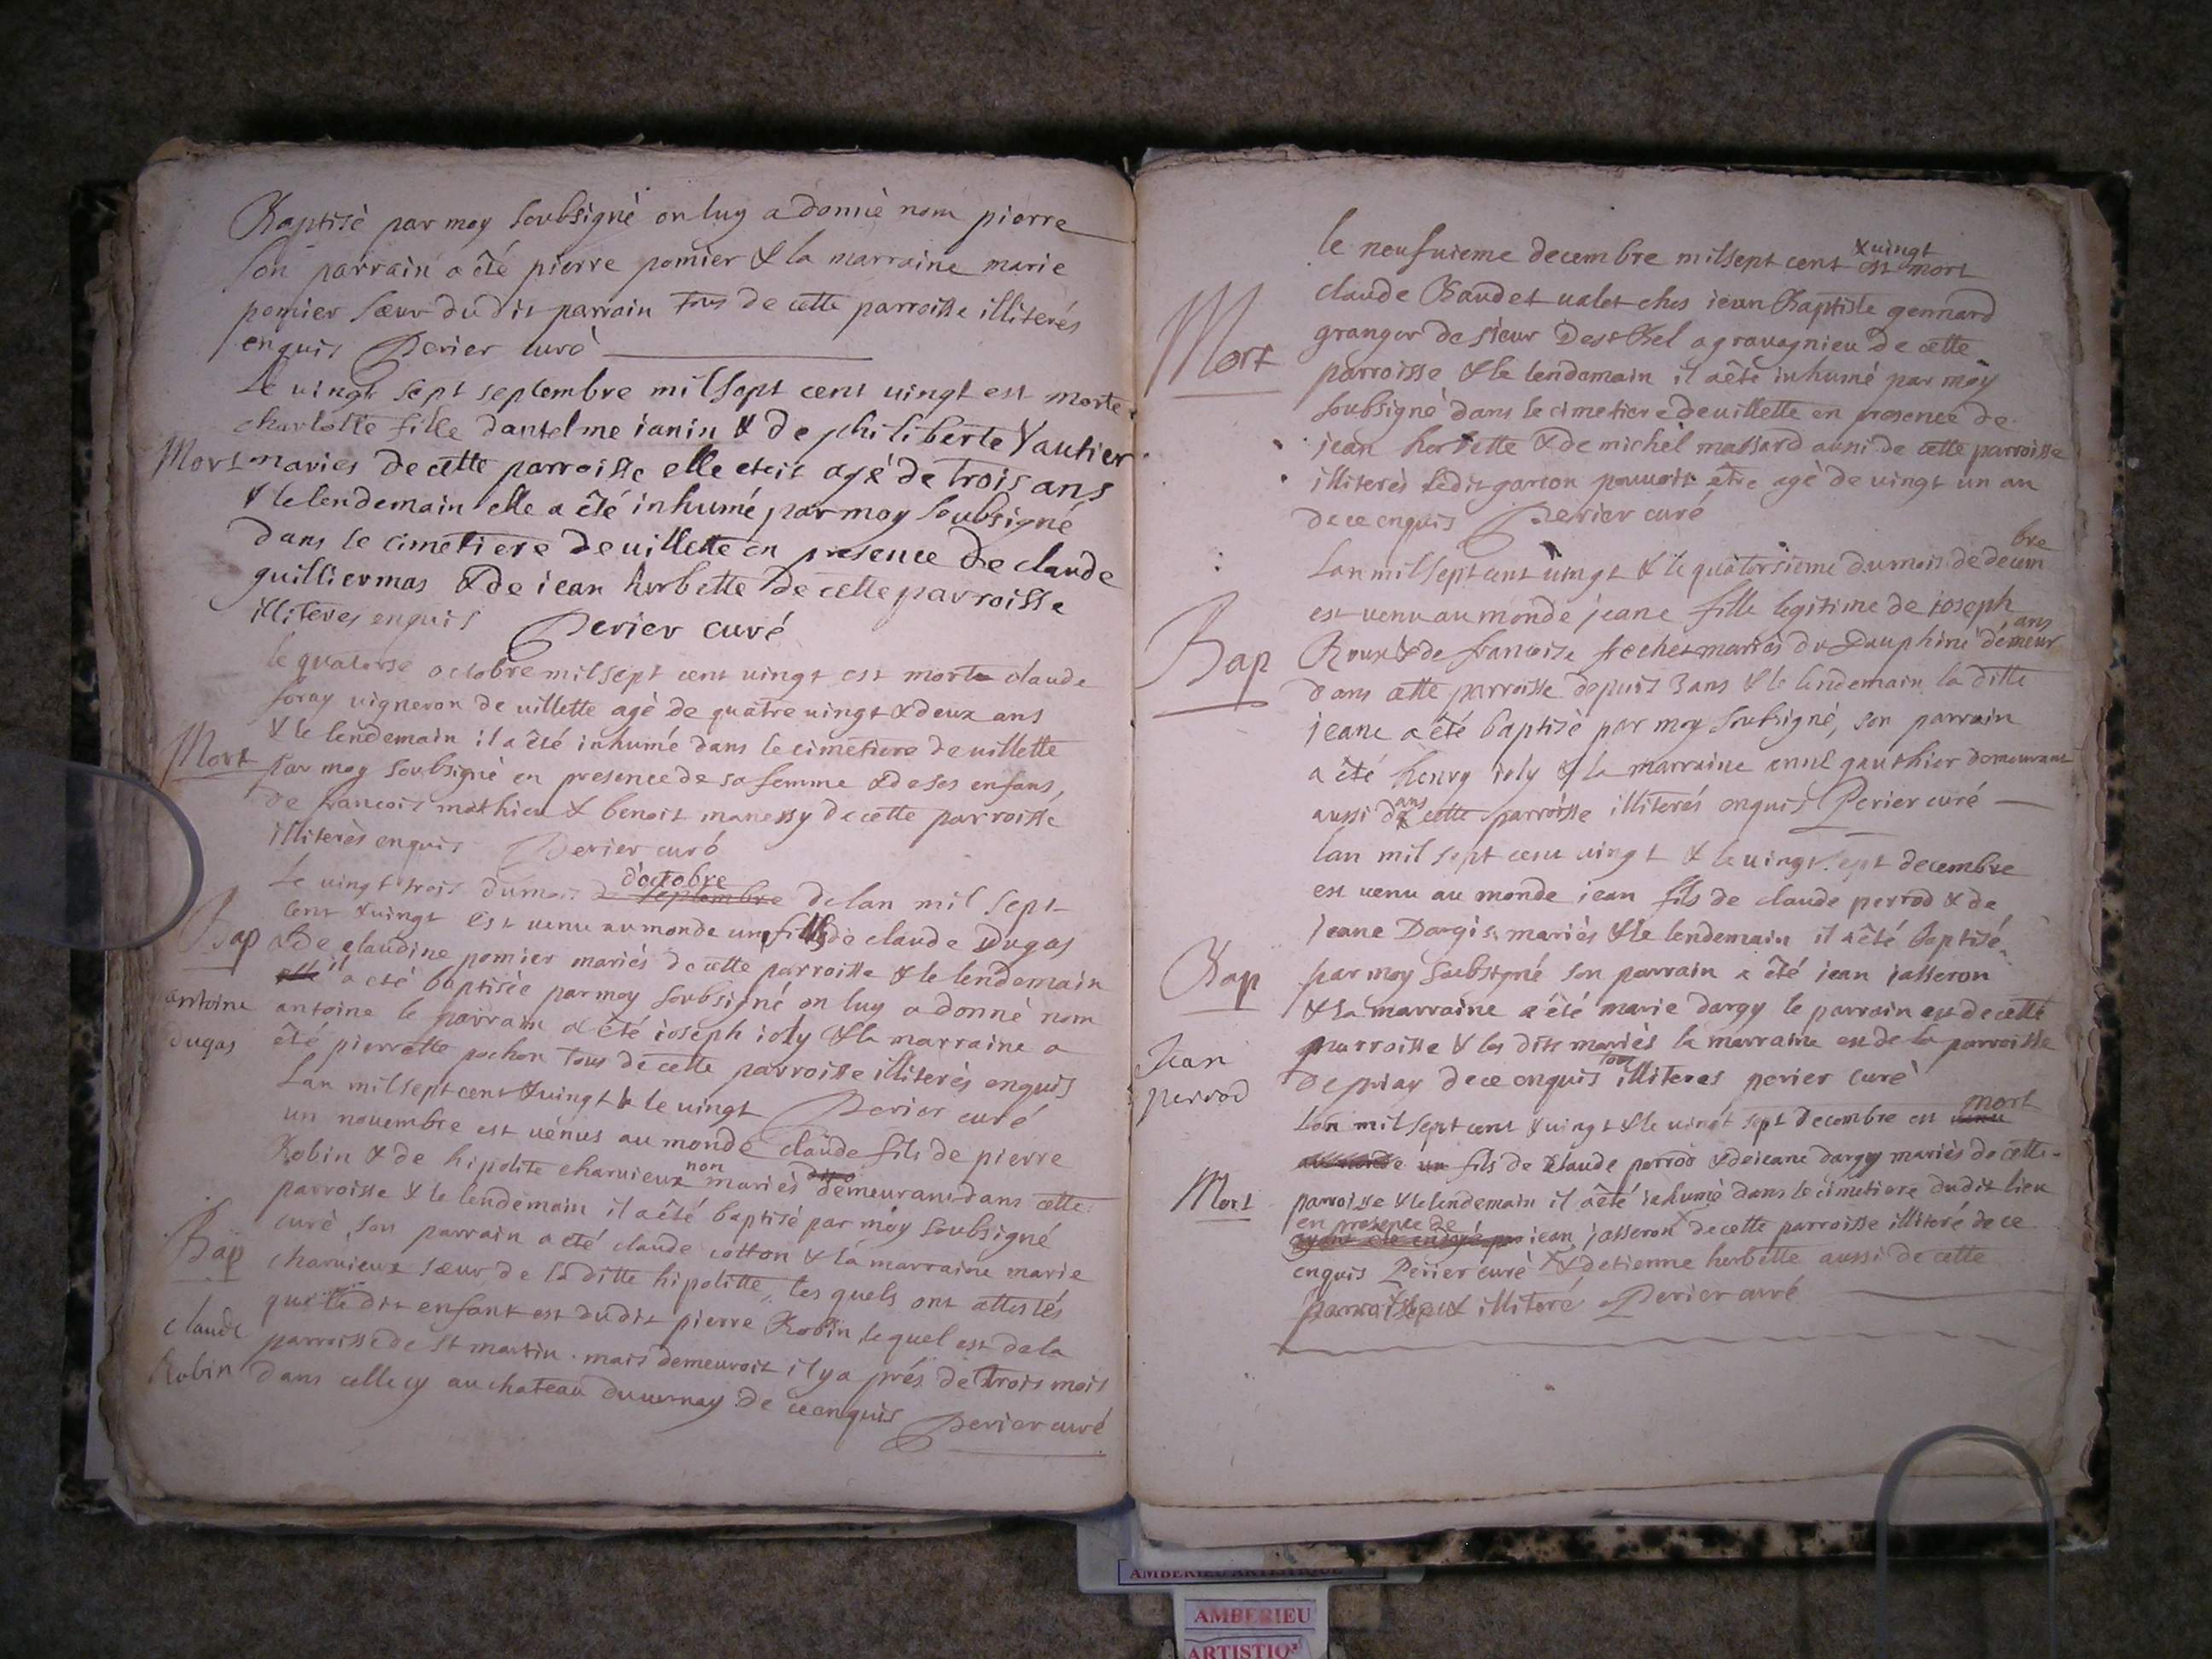 Baptisè par moy soubsigné on luy a donnè nom pierre
son parrain a êté pierre pomier & la marraine marie
pomier sœur du dit parrain tous de cette parroisse illiterés
enquis Perier curè
Le uingt sept septembre mil sept cent uingt est morte
charlotte fille dantelme ianin & de philiberte Vautier
Mort mariés de cette parroisse elle etoit agé de trois ans
& le lendemain elle a êté inhumé par moy soubsigné
dans le cimetiere de uillette en presence de claude
guilliermas & de iean herbette de cette parroisse
illiteres enquis Perier curé
le quatorse octobre mil sept cent uingt est mort claude
foray uigneron de uillette agè de quatre uingt & deux ans
& le lendemain il a êté inhumé dans le cimetiere de uillette
Mort
par moy soubsigné en presence de sa femme & de ses enfans,
de francois mathieu & benoit manessy de cette parroisse
illiterès enquis Perier curé
d'octobre
Le uingt trois du mois de septembre de lan mil sept
cent & uingt est uenu au monde un fils de claude Dugas
Bap & de claudine pomier mariés de cette parroisse & le lendemain
elle il a eté baptisée par moy soubsigné on luy a donnè nom
antoine antoine le parrain a êté ioseph ioly & la marraine a
dugas été pierrette pochon tous de cette parroisse illiterès enquis
Lan mil sept cent & uingt & le uingt Perier curé
un nouembre est uénus au monde claude fils de pierre
Robin & de hipolite charuieux non mariés demeurans dans cette
parroisse & le lendemain il a êté baptisé par moy soubsigné
curè, son parrain a eté claude cotton & la marraine marie
Bap
charuieux sœur de la ditte hipolitte, les quels ont attestés
que le dit enfant est du dit pierre Robin, le quel est de la
claude parroisse de st martin. mais demeuroit il y a prés de trois mois
Robin dans celle cy au chateau du uernay de ce enquis Perier curé
& uingt
le neufuieme decembre mil sept cent est mort
claude Baudet ualet ches iean Baptiste gennard
granger de sieur Destbel a grauagnieu de cette
Mort
parroisse & le lendemain il a êté inhumé par moy
soubsigné dans le cimetiere de uillette en presence de
jean herbette & de michel massard aussi de cette parroisse
illiterès ledit garcon pouuoit être agè de uingt un an
de ce enquis Perier curé
bre
Lan mil sept cent uingt & le quatorsieme du mois de decem
est uenu au monde jeane fille legitime de ioseph
ans
Bap Roux & de francoise frechet mariés du Dauphiné demeur
dans cette parroisse depuis 3 ans & le lendemain la ditte
jeane a êté baptisè par moy soubsigné, son parrain
a êté henry ioly & la marraine anne gauthier demeurant
aussi dans cette parroisse illiterés enquis Perier curé
lan mil sept cent uingt & le uingt sept decembre
est uenu au monde iean fils de claude perrod & de
jeane Dargis mariés & le lendemain il a êté baptisé
Bap par moy soubsigné son parrain a êté iean iasseron
& la marraine a êté marie dargy le parrain est de cette
Jean parroisse & les dits mariés la marraine est de la parroisse
tous
perrod de priay de ce enquis illiteres perier curè
mort
Lan mil sept cent & uingt & le uingt sept decembre est uenu
au monde un fils de claude perrod & de ieane dargy mariés de cette
Mort parroisse & le lendemain il a êté inhumé dans le cimetiere du dit lieu
en presence de
iean jasseron de cette parroisse illiteré de ce
enquis Perier curé & detienne herbette aussi de cette
parroisse & illiteré Perier curé
AMBERIEU ARTISTIQUE
AMBERIEU
ARTISTIQ